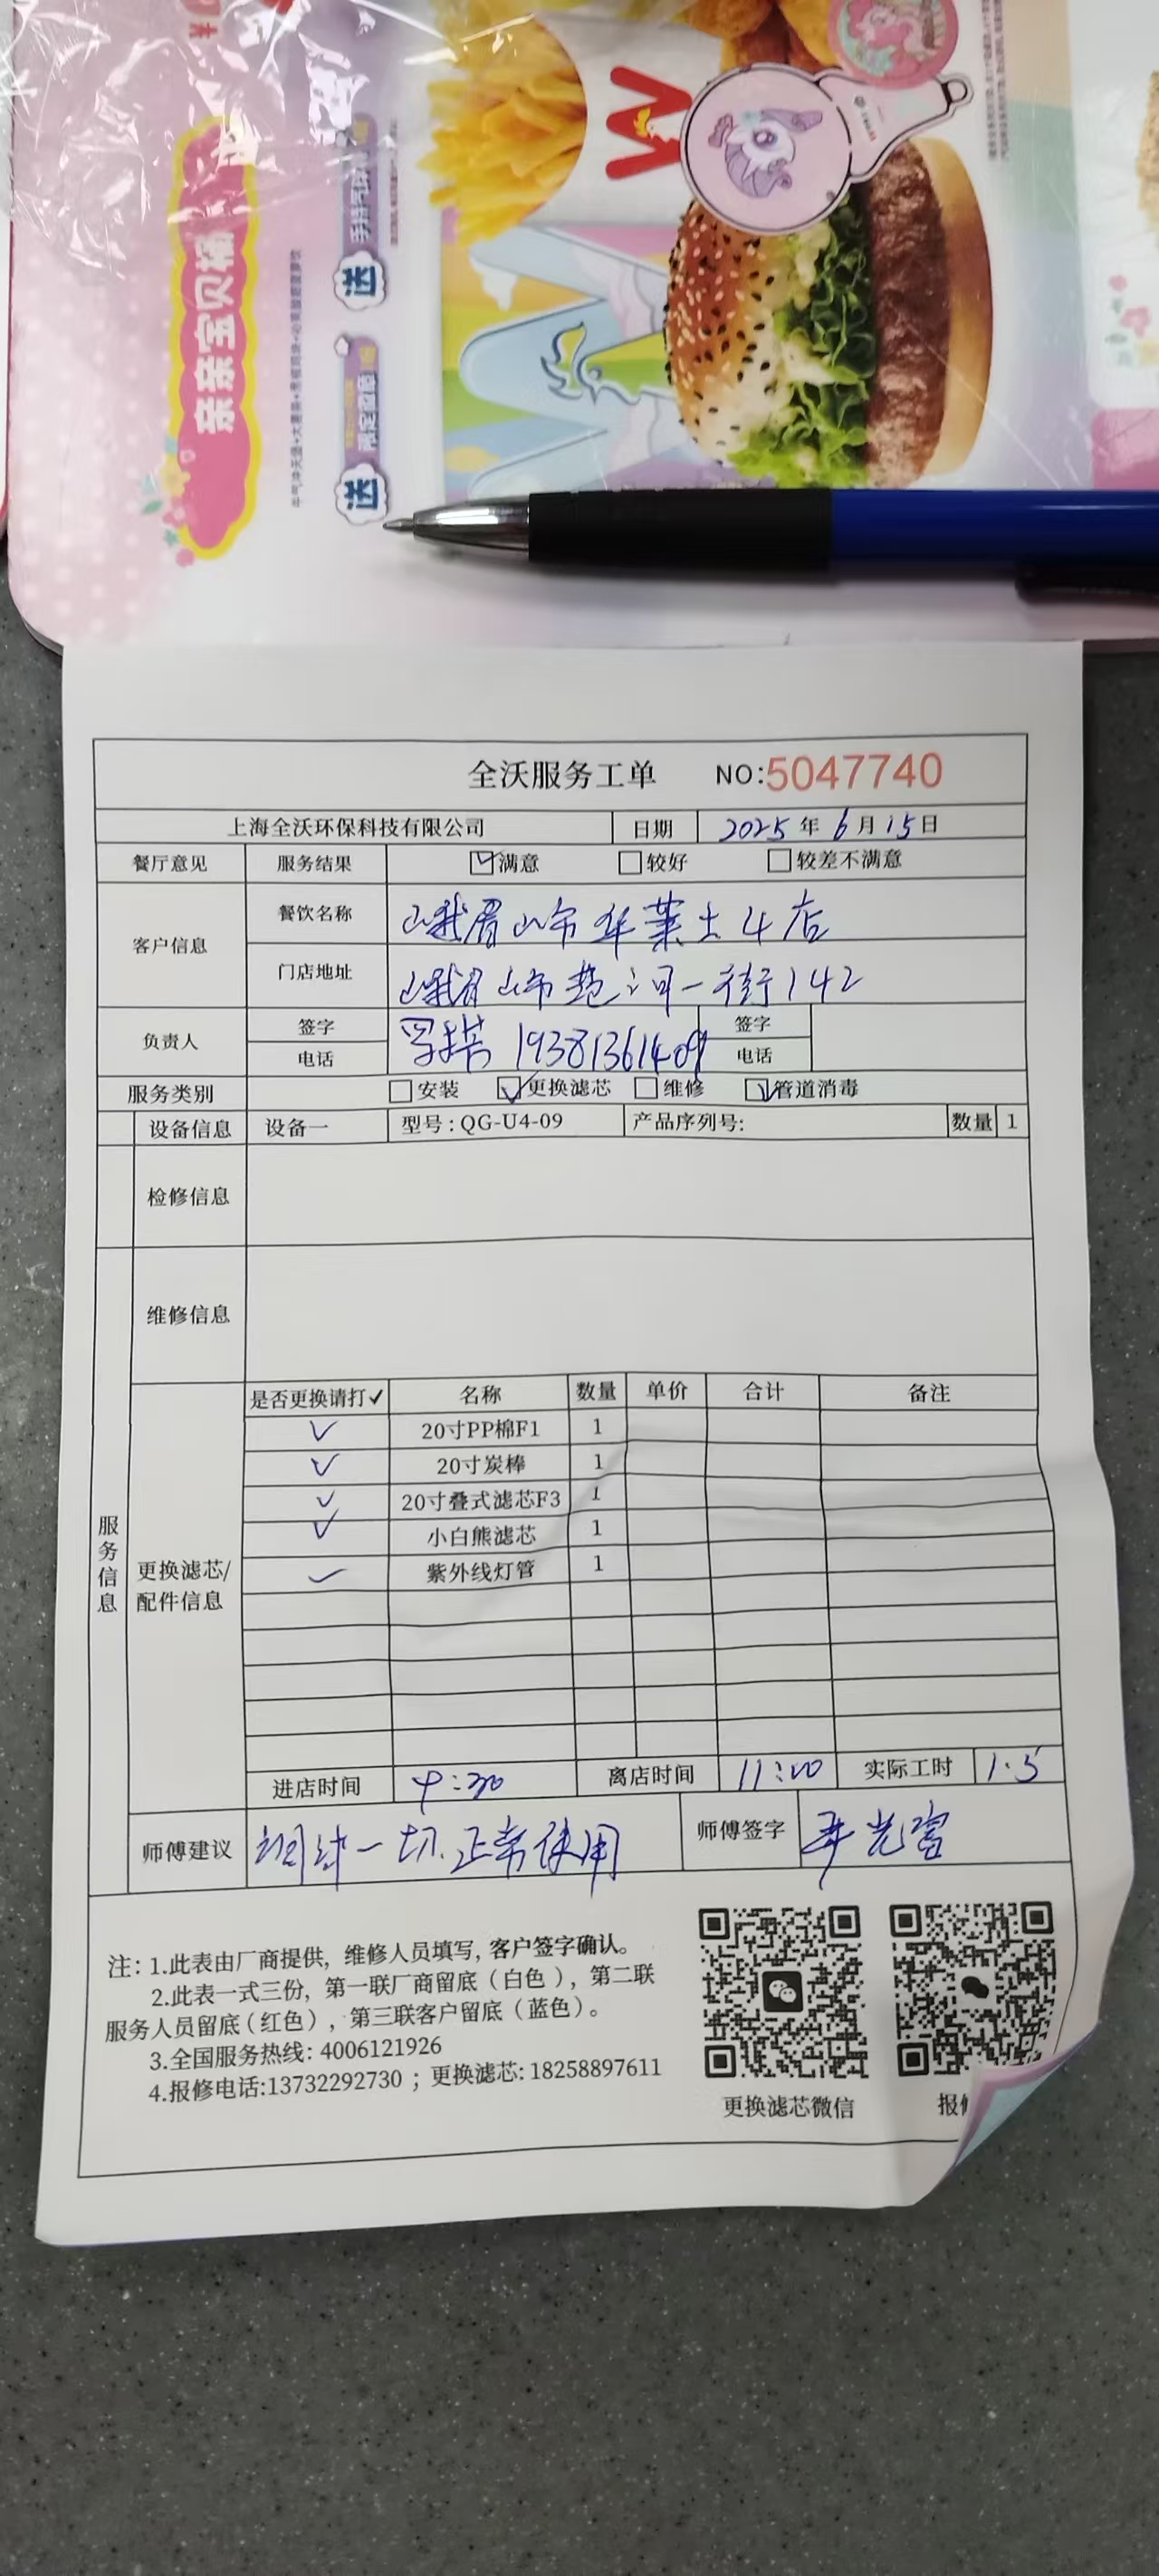 亲亲宝贝桶
送
送
全沃服务工单 NO:5047740
上海全沃环保科技有限公司 日期 2025年6月15日
餐厅意见 服务结果 满意 较好 较差不满意
客户信息 餐饮名称 峨眉山市华莱士4店
门店地址 峨眉山市 河一街142
负责人 签字 电话 19381361409 签字 电话
服务类别 安装 更换滤芯 维修 管道消毒
设备信息 设备一 型号:QG-U4-09 产品序列号: 数量 1
检修信息
维修信息
服务信息
更换滤芯/配件信息
是否更换请打✓ 名称 数量 单价 合计 备注
✓ 20寸PP棉F1 1
✓ 20寸炭棒 1
✓ 20寸叠式滤芯F3 1
✓ 小白熊滤芯 1
✓ 紫外线灯管 1
进店时间 9:30 离店时间 11:00 实际工时 1.5
师傅建议 一切正常使用 师傅签字
注: 1.此表由厂商提供, 维修人员填写, 客户签字确认。
2.此表一式三份, 第一联厂商留底（白色）, 第二联
服务人员留底（红色）, 第三联客户留底（蓝色）。
3.全国服务热线: 4006121926
4.报修电话:13732292730 ; 更换滤芯: 18258897611
更换滤芯微信 报修